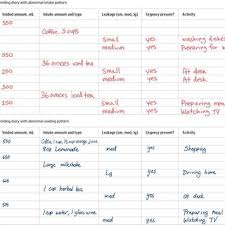 Voiding diary with abnormal intake pattern
Voided amount, mL Intake amount and type Leakage (sm, med, lg) Urgency present? Activity
350
Coffee, 3 cups
Small yes washing dishes
medium yes Preparing for
550
36 ounces iced tea
250 Small yes At desk
medium yes At desk
300
36 ounces iced tea
250 Small yes Preparing meal
medium yes Watching TV
Voiding diary with abnormal voiding pattern
Voided amount, mL Intake amount and type Leakage (sm, med, lg) Urgency present? Activity
Coffee, 1 cup, ½ cup orange juice
8oz Lemonade med yes Shopping
Large milkshake
Lg yes Driving home
1 cup herbal tea
med yes At desk
1 cup water, 1 glass wine yes Preparing meal
med yes Watching TV